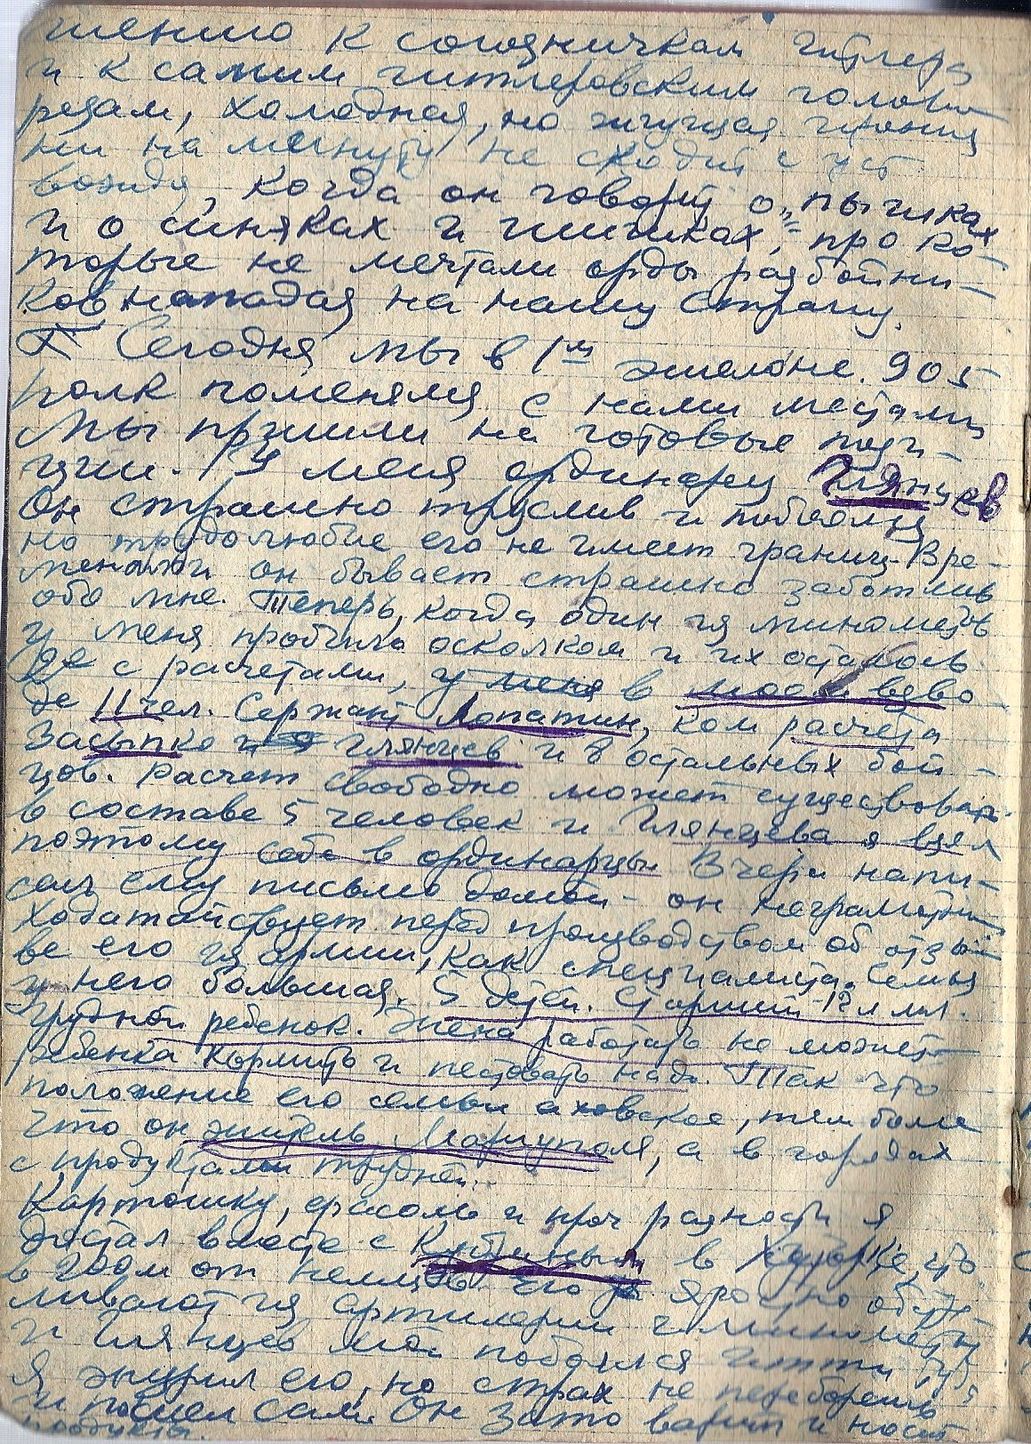 шению к союзничкам Гитлера
и к самим гитлеровским голово-
резам, холодная, но жгучая ирония
ни на минуту не сходит с уст
вождя, когда он говорит о „пышках
и о синяках и шишках", про ко-
торые не мечтали орды разбойни-
ков нападая на нашу страну.
Сегодня мы в 1м эшелоне. 905
полк поменялся с нами местами
Мы пришли на готовые пози-
ции. У меня ординарец Глянцев
Он страшно труслив и
но трудолюбие его не имеет границ. Вре-
менами он бывает страшно заботлив
обо мне. Теперь, когда один из минометов
у меня пробило осколком и их осталось
с расчетами, у меня в моем взво-
де 11 чел. Сержант Лопатин, ком расчета
Засыпко и Глянцев и 8 остальных бой-
цов. Расчет свободно может существовать
в составе 5 человек и Глянцева я взял
поэтому себе в ординарцы. Вчера напи-
сал ему письмо домой - он неграмотный
Ходатайствует перед производством об отзы-
ве его из армии, как специалиста. Семья
у него большая. 5 детей. Старший 12 лет.
Грудной ребенок. Жена работать не может
ребенка кормить и пестовать надо. Так что
положение его семьи аховское, тем более
что он житель Мариуполя, а в городах
с продуктами трудней.
Картошку, фасоль и проч разности я
достал вместе с Кубиным в хуторке, что
в 700м от немцев. Его яростно обстре-
ливают из артилерии и минометов
и Глянцев мой побоялся итти туда
Я журил его, но страх не переборешь
и пошел сам. Он зато варит и носит
продукты.